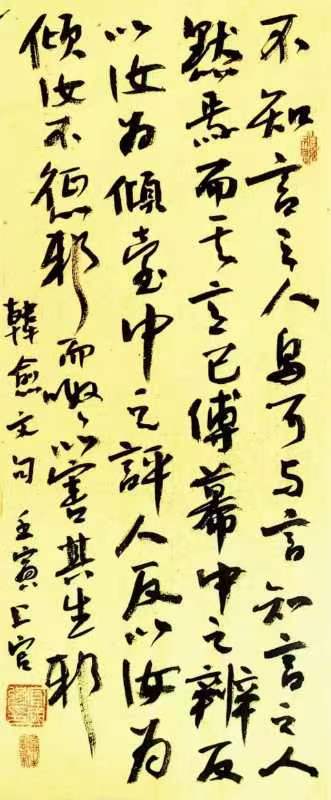 不知言之人烏可与言知言之人
默焉而其意已傳幕中之辨反
以汝为傾臺中之評人反以汝为
傾汝不惩邪而呶呶以害其生邪
韓愈文句 壬寅上官